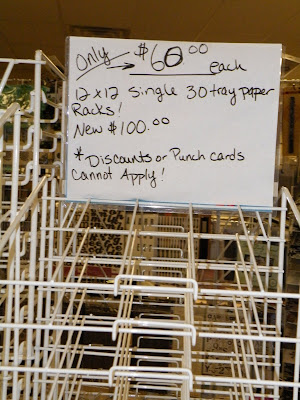 Only → $60.00 each
12x12 Single 30 tray paper
Racks!
New $100.00
* Discounts or Punch cards
Cannot Apply!